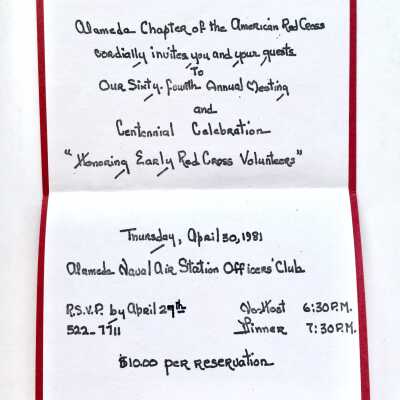 Alameda Chapter of the American Red Cross
cordially invites you and your guests
To
Our Sixty-fourth Annual Meeting
and
Centennial Celebration
"Honoring Early Red Cross Volunteers"
Thursday, April 30, 1981
Alameda Naval Air Station Officers' Club
R.S.V.P. by April 27th No-Host 6:30 P.M.
522-7711 Dinner 7:30 P.M.
$10.00 per reservation